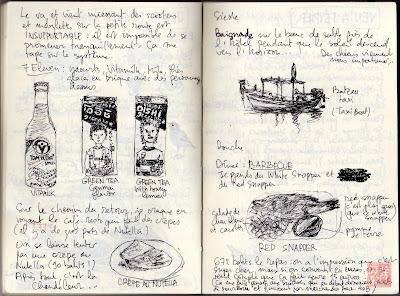 Le va et vient incessant des scooters
et mobylettes sur la petite route est
INSUPPORTABLE : il est impossible de se
promener tranquillement. Ça me
tape sur le système.
7 Eleven : yaourts, Vitamilk, Milo, thés
glacés en brique avec des personnages
dessus
VITAMILK
GREEN TEA
GREEN TEA
with honey
lemon
Sur le chemin du retour, je craque en
voyant le café resto qui fait des crêpes
(et il y a de gros pots de Nutella)
On se laisse tenter
par une crêpe au
Nutella (90 bahts)
Après tout c'est la
Chandeleur...
CREPE AU NUTELLA
Sieste
Baignade sur le banc de sable près de
l'hôtel pendant que le soleil descend
vers l'horizon...
Des chiens viennent
nous importuner.
Bateau
taxi
(Taxi Boat)
Douche
Dîner : BARBECUE
Je prends du White Snapper et
du Red Snapper
red snapper
(c'est plus gras
que le white
snapper)
pomme
de terre
salade de
et carotte
RED SNAPPER
675 bahts le repas, on a l'impression que c'est
super cher, mais on convertit en euros,